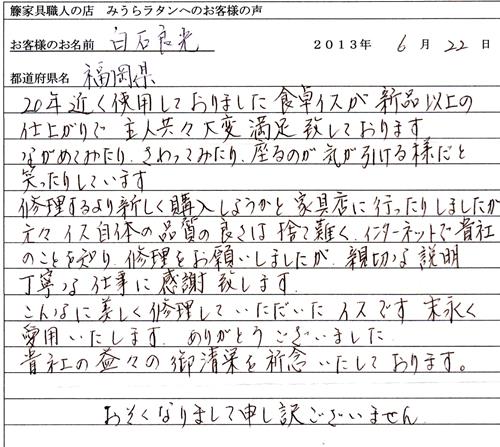 籐家具職人の店 みうらラタンへのお客様の声
お客様のお名前 白石良光 2013年 6月 22日
都道府県名 福岡県
20年近く使用しておりました食卓イスが新品以上の
仕上がりで 主人共々大変満足致しております
ながめてみたり、さわってみたり、座るのが気が引ける様だと
笑ったりしています
修理するより新しく購入しようかと家具店に行ったりしましたが
元々イス自体の品質の良さは捨て難く、インターネットで貴社
のことを知り、修理をお願いしましたが、親切な説明
丁寧な仕事に感謝致します
こんなに美しく修理していただいたイスです 末永く
愛用いたします。ありがとうございました
貴社の益々の御清栄を祈念いたしております。
おそくなりまして申し訳ございません